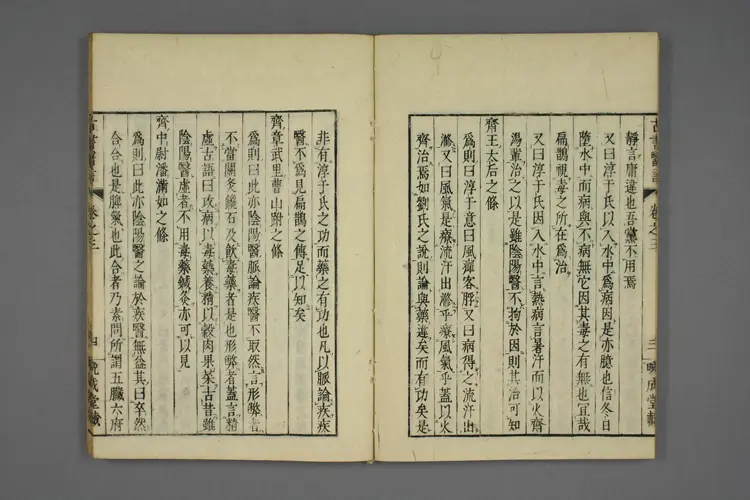 靜言庸違也吾黨不用焉
又曰淳于氏以入水中爲病因是亦臆也信冬日
墮水中而病與不病無它因其毒之有無也宜哉
扁鵲視毒之所在爲治
又曰淳于氏因入水中言熱病言暑汗而以火齊
湯輩治之以是雖陰陽醫不拘於因則其治可知
齊王太后之條
爲則曰淳于意曰風癉客脬又曰病得之流汗出
㵌又曰風氣是療流汗出㵌乎療風氣乎蓋以火
齊治焉如劉氏之說則論與藥違矣而有功矣是
古書醫言
卷之三
三
晚成堂藏
非有淳于氏之功而藥之有功也凡以脈論疾疾
醫不爲見扁鵲之傳足以知矣
齊章武里曹山跗之條
爲則曰此亦陰陽醫脈論疾醫不取然言形弊者
不當關灸鑱石及飲毒藥者是也形弊者蓋言精
虛古語曰攻病以毒藥養精以穀肉果菜古昔雖
陰陽醫虛者不用毒藥鍼灸亦可以見
齊中尉潘滿如之條
爲則曰此亦陰陽醫之論於疾醫無益其曰卒然
合合也是脾氣也此合者乃素問所謂五臟六府
古書醫言
卷之三
四
晚成堂藏